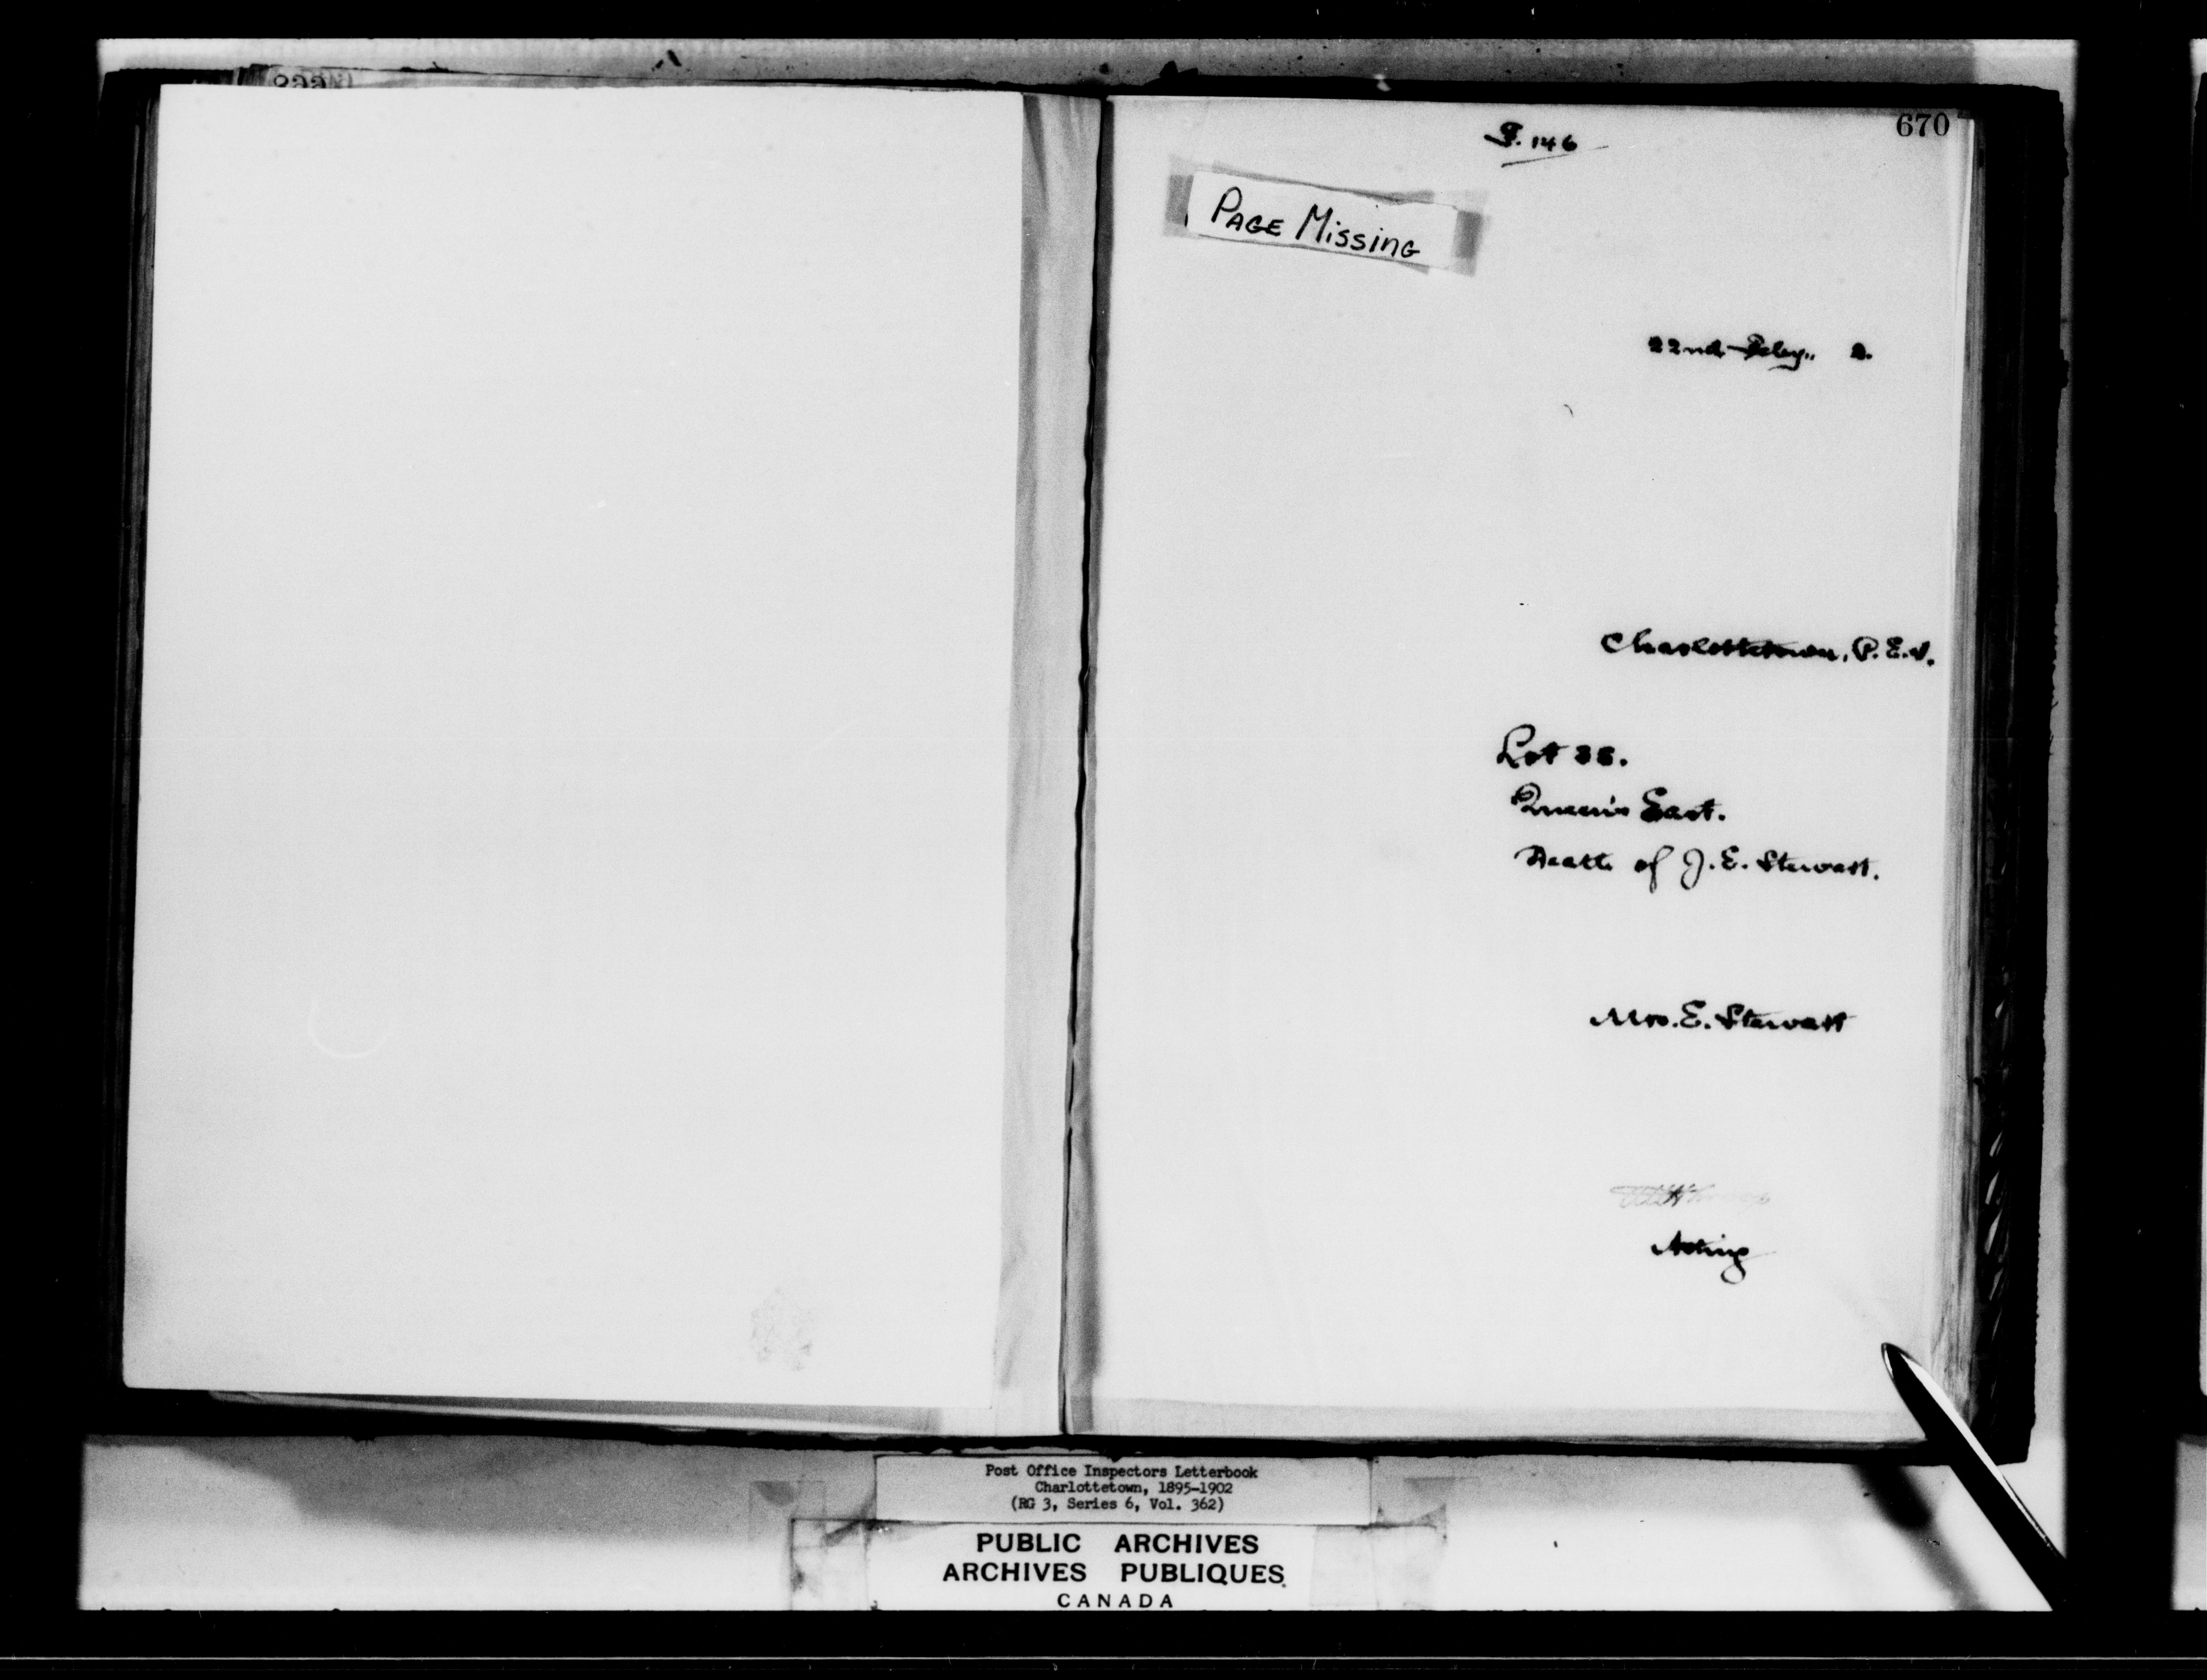 670
P. 146
PAGE MISSING
22nd Feby., 2.
Charlottetown, P.E.I.
Lot 35.
Queen's East.
Death of J. E. Stewart.
Mrs. E. Stewart
Acting
Post Office Inspectors Letterbook
Charlottetown, 1895-1902
(RG 3, Series 6, Vol. 362)
PUBLIC ARCHIVES
ARCHIVES PUBLIQUES
CANADA